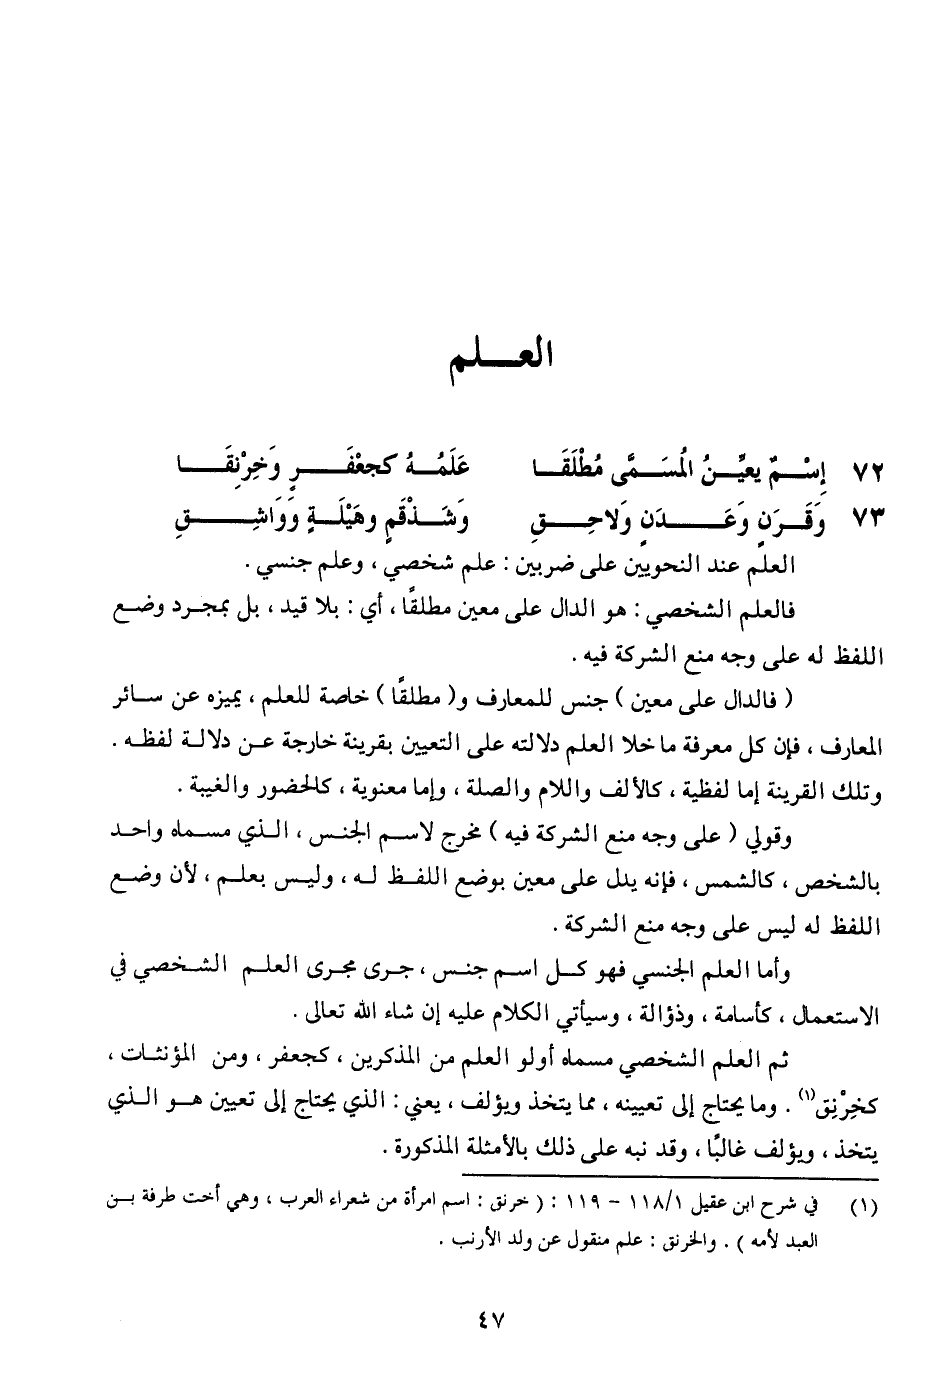 العـــلـــم
٧٢ إِسْـــمٌ يعيِّـــنُ المُسَـــمَّى مُطْلَقَـــا عَلَمُـــهُ كجعْفَـــرٍ وَخِرْنِقَـــا
٧٣ وَقَـــرَنٍ وَعَـــدَنٍ وَلاحِـــقِ وَشَـــذْقَمٍ وهَيْلَـــةٍ وَوَاشِـــقِ
العلم عند النحويين على ضربين : علم شخصي ، وعلم جنسي .
فالعلم الشخصي : هو الدال على معين مطلقًا ، أي : بلا قيد ، بل بمجرد وضع
اللفظ له على وجه منع الشركة فيه .
( فالدال على معين ) جنس للمعارف و( مطلقًا ) خاصة للعلم ، يميزه عن سائر
المعارف ، فإن كل معرفة ما خلا العلم دلالته على التعيين بقرينة خارجة عن دلالة لفظه .
وتلك القرينة إما لفظية ، كالألف واللام والصلة ، وإما معنوية ، كالحضور والغيبة .
وقولي ( على وجه منع الشركة فيه ) مخرج لاسم الجنس ، الذي مسماه واحد
بالشخص ، كالشمس ، فإنه يدل على معين بوضع اللفظ له ، وليس بعلم ، لأن وضع
اللفظ له ليس على وجه منع الشركة .
وأما العلم الجنسي فهو كل اسم جنس ، جرى مجرى العلم الشخصي في
الاستعمال ، كأسامة ، وذؤالة ، وسيأتي الكلام عليه إن شاء الله تعالى .
ثم العلم الشخصي مسماه أولو العلم من المذكرين ، كجعفر ، ومن المؤنثات ،
كخِرْنِق(١) . وما يحتاج إلى تعيينه ، مما يتخذ ويؤلف ، يعني : الذي يحتاج إلى تعيين هو الذي
يتخذ ، ويؤلف غالبًا ، وقد نبه على ذلك بالأمثلة المذكورة .
(١) في شرح ابن عقيل ١١٨/١ – ١١٩ : ( خرنق : اسم امرأة من شعراء العرب ، وهي أخت طرفة بن
العبد لأمه ) . والخرنق : علم منقول عن ولد الأرنب .
٤٧